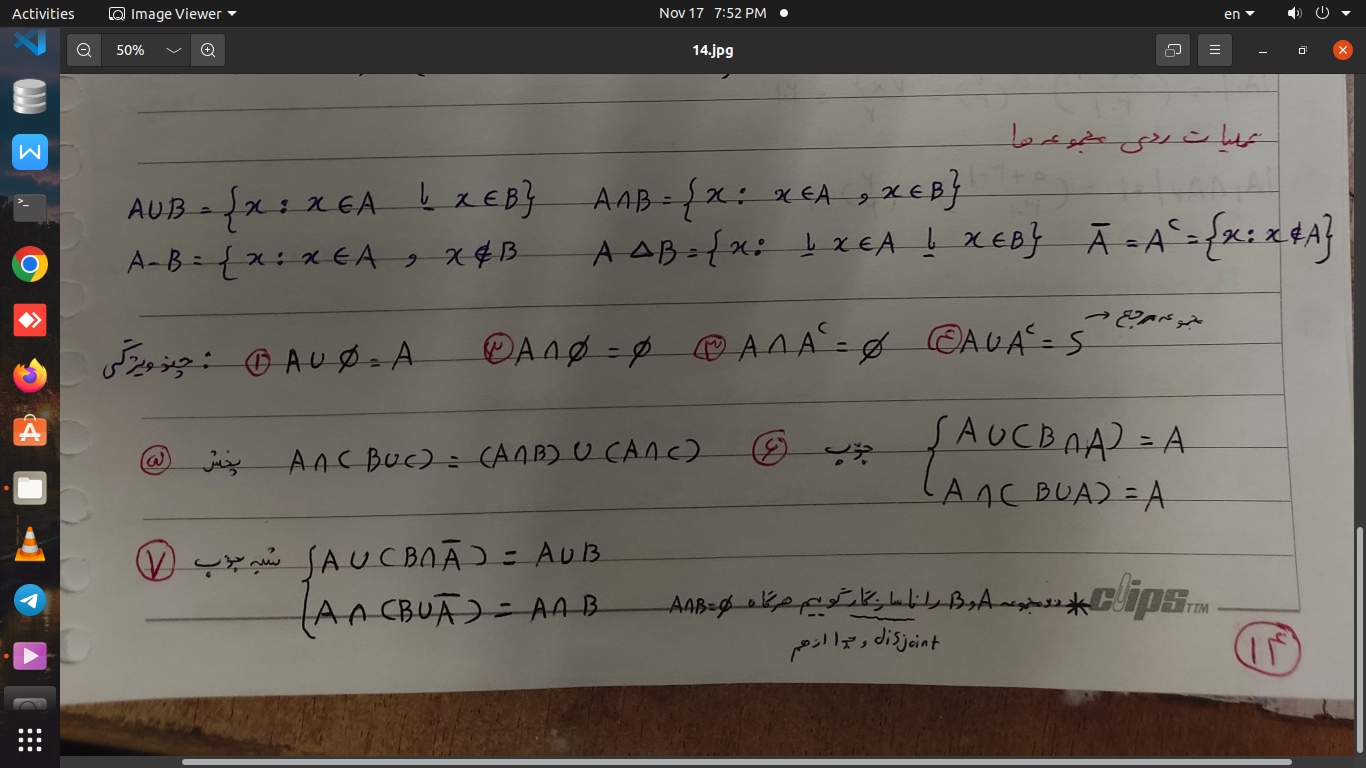 Activities Image Viewer Nov 17 7:52 PM en
50% 14.jpg
عملیات روی مجموعه ها
A∪B = {x : x∈A یا x∈B} A∩B = {x : x∈A , x∈B}
A-B = {x : x∈A , x∉B A △ B = {x : یا x∈A یا x∈B} Ā = Aᶜ = {x : x∉A}
چند ویژگی : ① A∪∅ = A ② A∩∅ = ∅ ③ A∩Aᶜ = ∅ ④ A∪Aᶜ = S → مجموعه مرجع
⑤ پخش A∩(B∪C) = (A∩B)∪(A∩C) ⑥ جذب { A∪(B∩A) = A
A∩(B∪A) = A
⑦ شبه جذب { A∪(B∩Ā) = A∪B
A∩(B∪Ā) = A∩B
* دو مجموعه A و B را ناسازگار گوییم هرگاه A∩B=∅
disjoint و جدا از هم
clips TM
۱۴